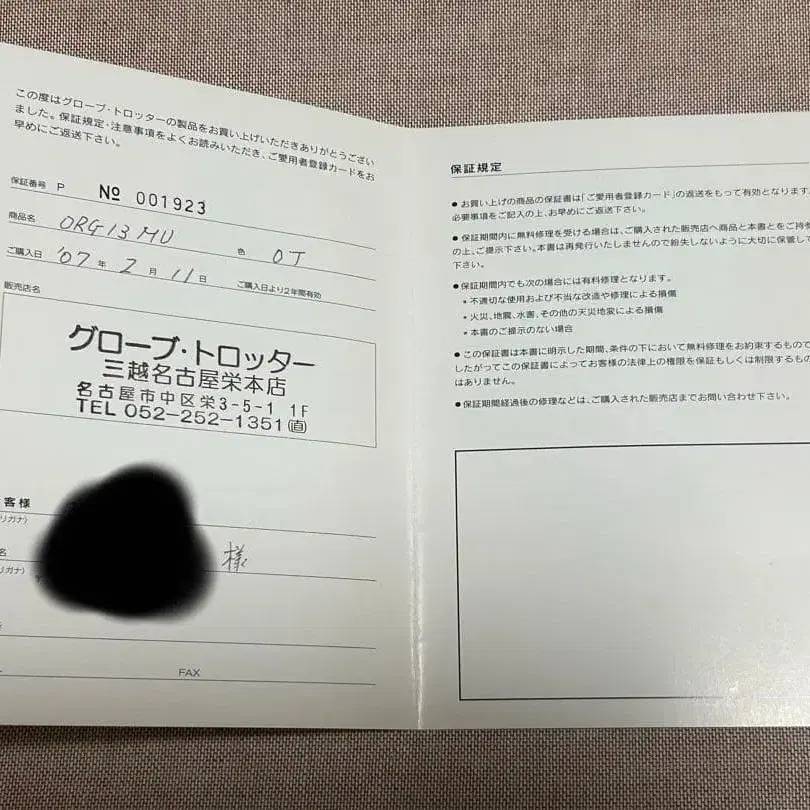 この度はグローブ・トロッターの製品をお買い上げいただきありがとうござい
ました。保証規定・注意事項をよくお読みいただき、ご愛用者登録カードをお
早めにご返送下さい。
保証番号 P № 001923
商品名 ORG 13 MU 色 OT
ご購入日 '07 年 2 月 11 日 ご購入日より2年間有効
販売店名
グローブ・トロッター
三越名古屋栄本店
名古屋市中区栄3-5-1 1F
TEL 052-252-1351(直)
客様
リガナ)
名 様
リガナ)
FAX
保証規定
●お買い上げの商品の保証書は「ご愛用者登録カード」の返送をもって有効となります。
必要事項をご記入の上、お早めにご返送下さい。
●保証期間内に無料修理を受ける場合は、ご購入された販売店へ商品と本書とをご持参
の上、ご提示下さい。本書は再発行いたしませんので紛失しないように大切に保管して
下さい。
●保証期間内でも次の場合には有料修理となります。
•不適切な使用および不当な改造や修理による損傷
•火災、地震、水害、その他の天災地変による損傷
•本書のご提示のない場合
●この保証書は本書に明示した期間、条件の下において無料修理をお約束するもので
したがってこの保証書によってお客様の法律上の権限を保証もしくは制限するもの
はありません。
●保証期間経過後の修理などは、ご購入された販売店までお問い合わせ下さい。